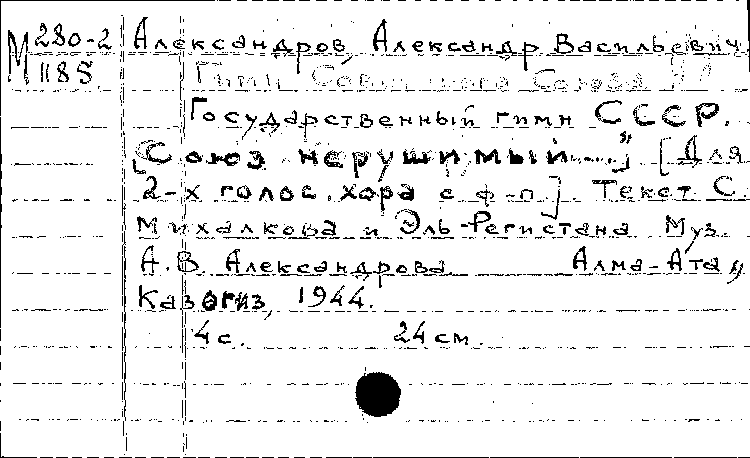 М 280-2 Александров, Александр Васильевич.
1185 Гимн Советского Союза
Государственный гимн СССР.
["Союз нерушимый...."] [Для
2-х голос. хора с ф-п]. Текст С.
Михалкова и Эль-Регистана Муз.
А.В. Александрова Алма-Ата,
Казогиз, 1944.
4 с. 24 см.